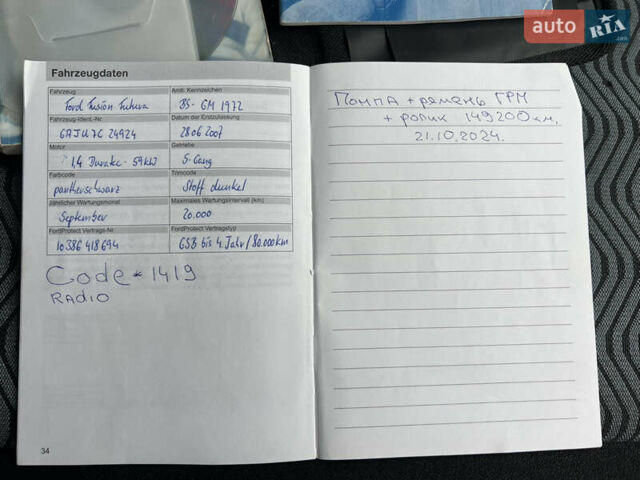 auto RIA
.com
Fahrzeugdaten
Fahrzeug
Amtl. Kennzeichen
Ford Fusion Futura
BS- GM 1972
Fahrzeug-Ident.-Nr
Datum der Erstzulassung
6AJU7G 24924
28 06 2007
Motor
Getriebe
1,4 Duratec - 59kW
5-Gang
Farbcode
Trimcode
pantherschwarz
Stoff dunkel
Jährlicher Wartungsmonat
Maximales Wartungsintervall (km)
September
20.000
FordProtect Vertrags-Nr
FordProtect Vertragstyp
10 386 418 694
GSB bis 4. Jahr/80.000km
Code * 1419
RADIO
34
Помпа + ремень ГРМ
+ ролик 149200км.
21.10.2024.